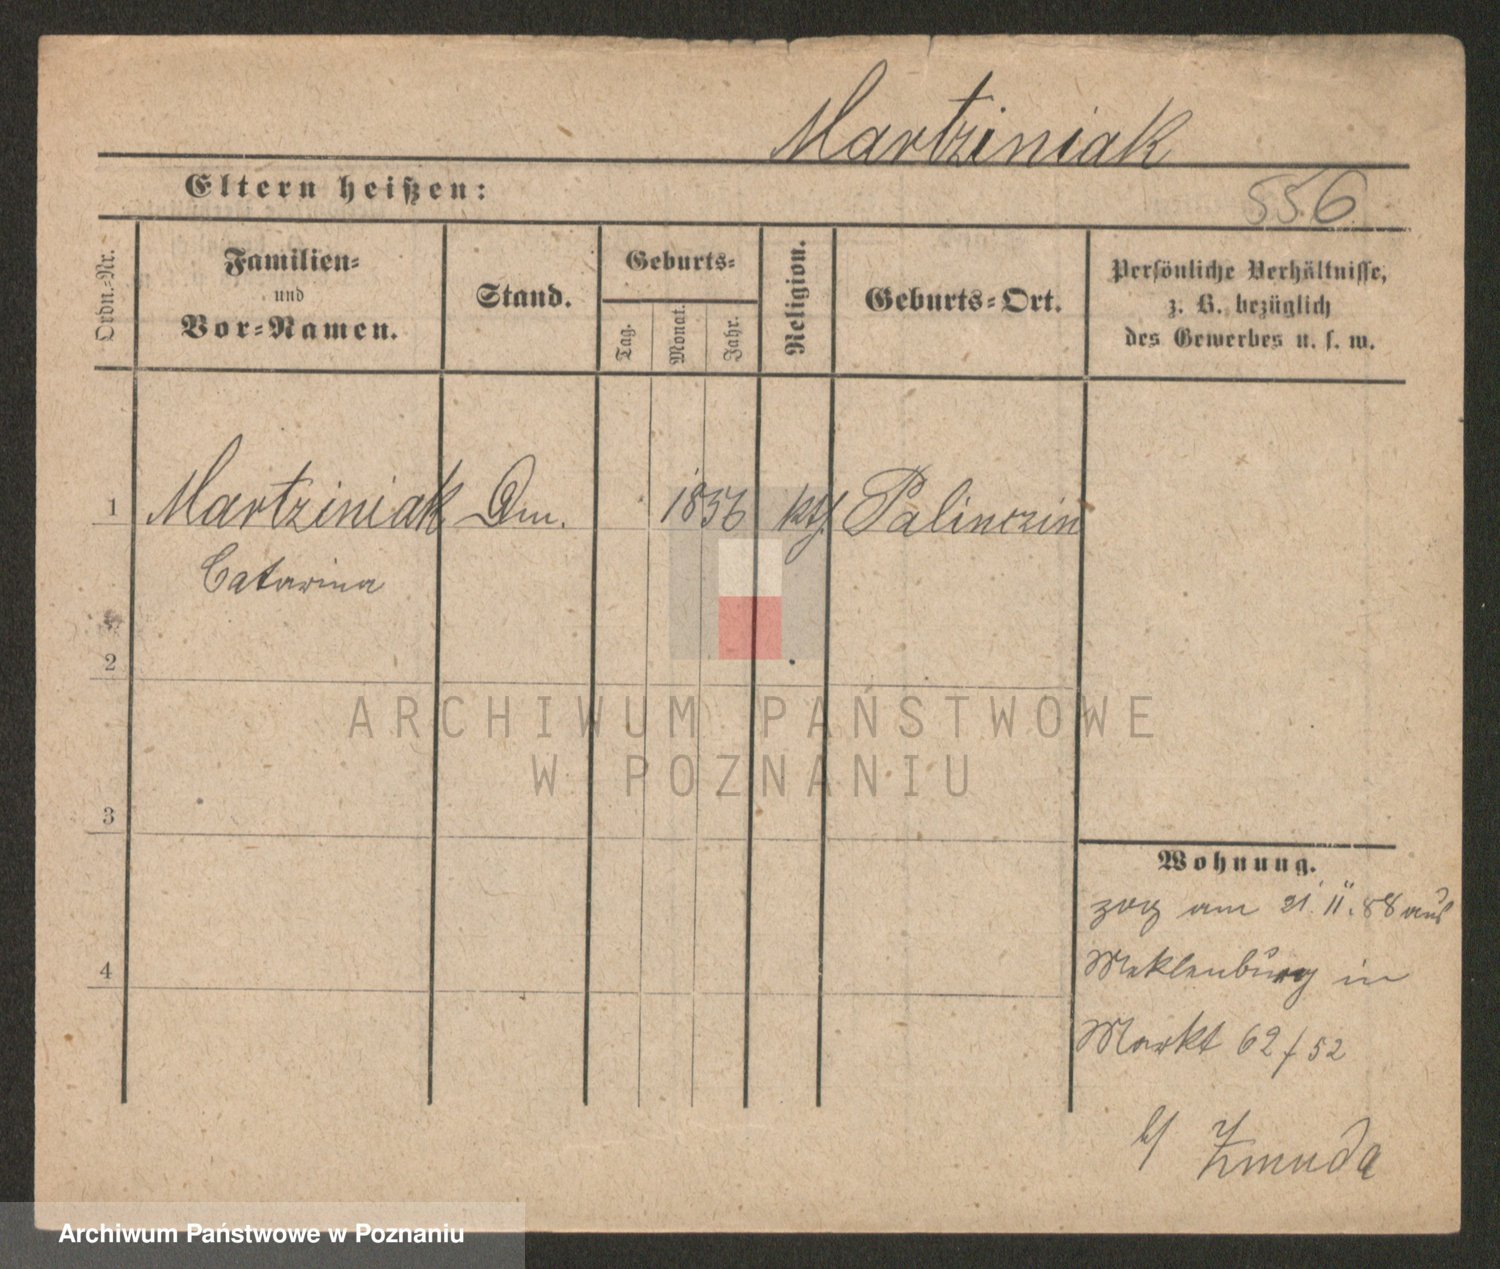 Martziniak
Eltern heißen:
556
Ordn.-Nr.
Familien-
und
Vor-Namen.
Stand.
Geburts-
Tag.
Monat.
Jahr.
Religion.
Geburts-Ort.
Persönliche Verhältnisse,
z. B. bezüglich
des Gewerbes u. s. w.
1 Martziniak 1856 kth Palinczin
Catarina
2
ARCHIWUM PAŃSTWOWE
W POZNANIU
3
Wohnung.
zog am 21. 11. 88 aus
4
Meklenburg in
Markt 62/52
b/ Zmuda
Archiwum Państwowe w Poznaniu